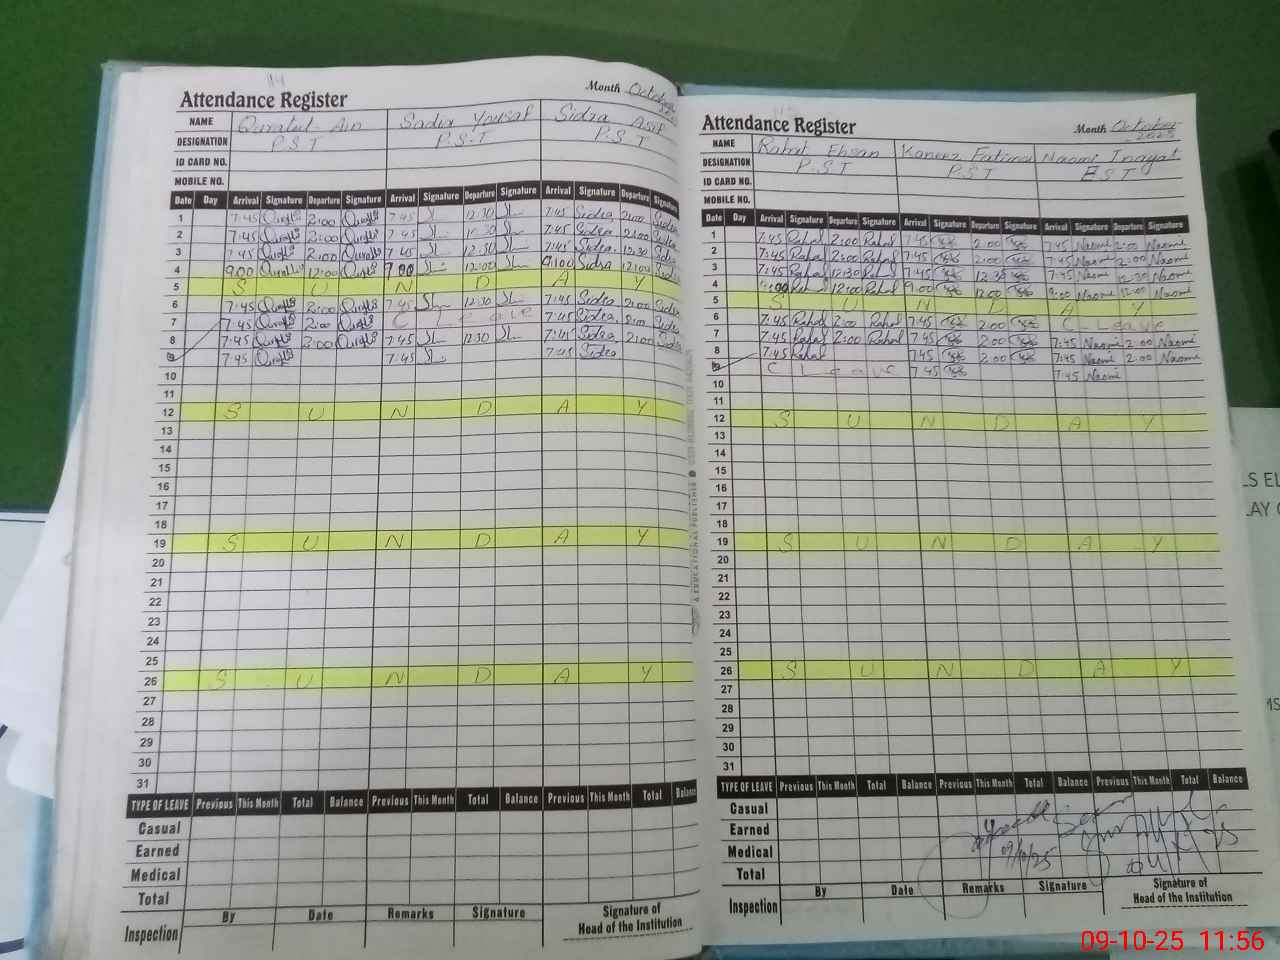 Attendance Register Month October
NAME Quratul-Ain Sadia Yousaf Sidra Asif
DESIGNATION P.S.T P.S.T P.S.T
ID CARD NO.
MOBILE NO.
Date Day Arrival Signature Departure Signature Arrival Signature Departure Signature Arrival Signature Departure Signature
1 7:45 2:00 7:45 12:30 7:45 Sidra 2:00 Sidra
2 7:45 2:00 7:45 7:45 Sidra 2:00 Sidra
3 7:45 2:00 7:45 12:30 7:45 Sidra 12:30 Sidra
4 9:00 12:00 12:00 9:00 Sidra 12:00
5 S U N D A Y
6 7:45 2:00 7:45 12:30 7:45 Sidra 2:00 Sidra
7 7:45 2:00 C Leave 7:45 Sidra 2:00 Sidra
8 7:45 2:00 7:45 12:30 7:45 Sidra 2:00 Sidra
9 7:45 7:45 7:45 Sidra
10
11
12 S U N D A Y
13
14
15
16
17
18
19 S U N D A Y
20
21
22
23
24
25
26 S U N D A Y
27
28
29
30
31
TYPE OF LEAVE Previous This Month Total Balance Previous This Month Total Balance Previous This Month Total Balance
Casual
Earned
Medical
Total
Inspection By Date Remarks Signature Signature of
Head of the Institution
Attendance Register Month October
2025
NAME Rahat Ehsan Kaneez Fatima Naomi Inayat
DESIGNATION P.S.T P.S.T E.S.T
ID CARD NO.
MOBILE NO.
Date Day Arrival Signature Departure Signature Arrival Signature Departure Signature Arrival Signature Departure Signature
1 7:45 Rahat 2:00 Rahat 7:45 2:00 7:45 Naomi 2:00 Naomi
2 7:45 Rahat 2:00 Rahat 7:45 2:00 7:45 Naomi 2:00 Naomi
3 7:45 Rahat 12:30 Rahat 7:45 12:30 7:45 Naomi 12:30 Naomi
4 9:00 Rahat 12:00 Rahat 9:00 12:00 9:00 Naomi 12:00 Naomi
5 S U N D A Y
6 7:45 Rahat 2:00 Rahat 7:45 2:00 C-Leave
7 7:45 Rahat 2:00 Rahat 7:45 2:00 7:45 Naomi 2:00 Naomi
8 7:45 Rahat 7:45 2:00 7:45 Naomi 2:00 Naomi
9 C Leave 7:45 7:45 Naomi
10
11
12 S U N D A Y
13
14
15
16
17
18
19 S U N D A Y
20
21
22
23
24
25
26 S U N D A Y
27
28
29
30
31
TYPE OF LEAVE Previous This Month Total Balance Previous This Month Total Balance Previous This Month Total Balance
Casual
Earned
Medical
Total
Inspection By Date Remarks Signature Signature of
Head of the Institution
09-10-25 11:56